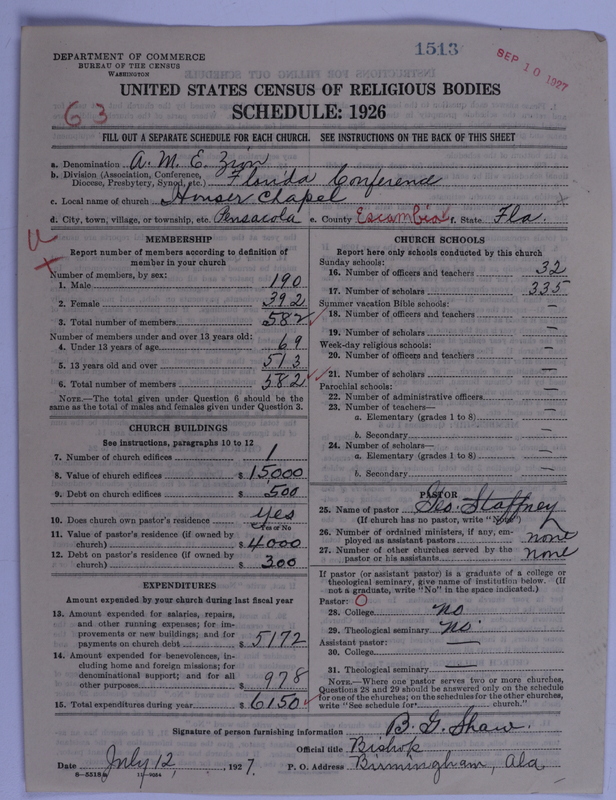 1513
SEP 10 1927
DEPARTMENT OF COMMERCE
BUREAU OF THE CENSUS
WASHINGTON
UNITED STATES CENSUS OF RELIGIOUS BODIES
SCHEDULE: 1926
63
FILL OUT A SEPARATE SCHEDULE FOR EACH CHURCH. SEE INSTRUCTIONS ON THE BACK OF THIS SHEET
a. Denomination A. M. E. Zion
b. Division (Association, Conference,
Diocese, Presbytery, Synod, etc.) Florida Conference
c. Local name of church Houser Chapel
d. City, town, village, or township, etc. Pensacola e. County Escambia f. State Fla.
MEMBERSHIP
Report number of members according to definition of
member in your church
Number of members, by sex:
1. Male 190
2. Female 392
3. Total number of members 582
Number of members under and over 13 years old:
4. Under 13 years of age 69
5. 13 years old and over 513
6. Total number of members 582
NOTE.—The total given under Question 6 should be
same as the total of males and females given under Question 3.
CHURCH BUILDINGS
See instructions, paragraphs 10 to 12
7. Number of church edifices 1
8. Value of church edifices $ 15000
9. Debt on church edifices $ 500
10. Does church own pastor's residence yes
Yes or No
11. Value of pastor's residence (if owned by
church) $ 4000
12. Debt on pastor's residence (if owned by
church) $ 300
EXPENDITURES
Amount expended by your church during last fiscal year
13. Amount expended for salaries, repairs,
and other running expenses; for im-
provements or new buildings; and for
payments on church debt $ 5172
14. Amount expended for benevolences, in-
cluding home and foreign missions; for
denominational support; and for all
other purposes $ 978
15. Total expenditures during year $ 6150
CHURCH SCHOOLS
Report here only schools conducted by this church
Sunday schools:
16. Number of officers and teachers 32
17. Number of scholars 335
Summer vacation Bible schools:
18. Number of officers and teachers —
19. Number of scholars —
Week-day religious schools:
20. Number of officers and teachers —
21. Number of scholars —
Parochial schools:
22. Number of administrative officers —
23. Number of teachers—
a. Elementary (grades 1 to 8) —
b. Secondary —
24. Number of scholars—
a. Elementary (grades 1 to 8) —
b. Secondary —
PASTOR
25. Name of pastor Geo. Staffney
(If church has no pastor, write "None")
26. Number of ordained ministers, if any, em-
ployed as assistant pastors none
27. Number of other churches served by the
pastor or his assistants none
If pastor (or assistant pastor) is a graduate of a college or
theological seminary, give name of institution below. (If
not a graduate, write "No" in the space indicated.)
Pastor: O
28. College no
29. Theological seminary no.
Assistant pastor:
30. College —
31. Theological seminary —
NOTE.—Where one pastor serves two or more churches,
Questions 28 and 29 should be answered only on the schedule
for one of the churches; on the schedules for the other churches,
write "See schedule for church."
Signature of person furnishing information B. G. Shaw.
Official title Bishop
Date July 12, 1927. P. O. Address Birmingham, Ala
8—5518a 11—9084